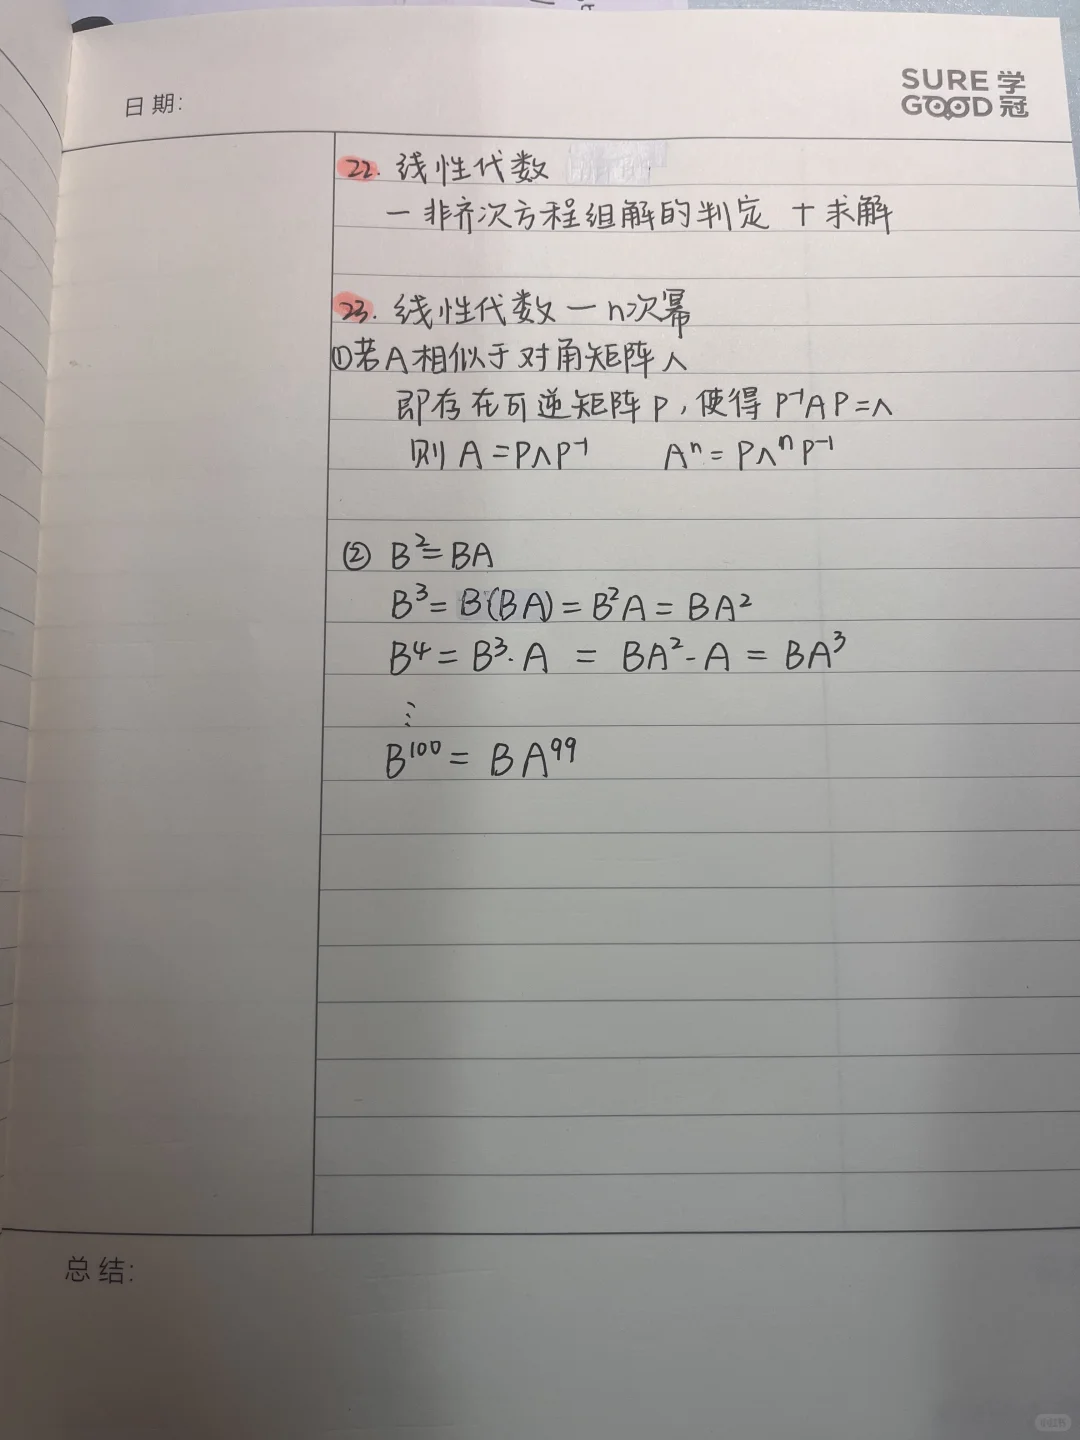 日期:
SURE 学
GOOD 冠
22. 线性代数
一 非齐次方程组解的判定 + 求解
23. 线性代数 一 n次幂
①若A相似于对角矩阵Λ
即存在可逆矩阵P,使得 P⁻¹AP=Λ
则 A=PΛP⁻¹ Aⁿ=PΛⁿP⁻¹
② B²=BA
B³=B(BA)=B²A=BA²
B⁴=B³·A = BA²-A = BA³
⋮
B¹⁰⁰= BA⁹⁹
总结:
小红书